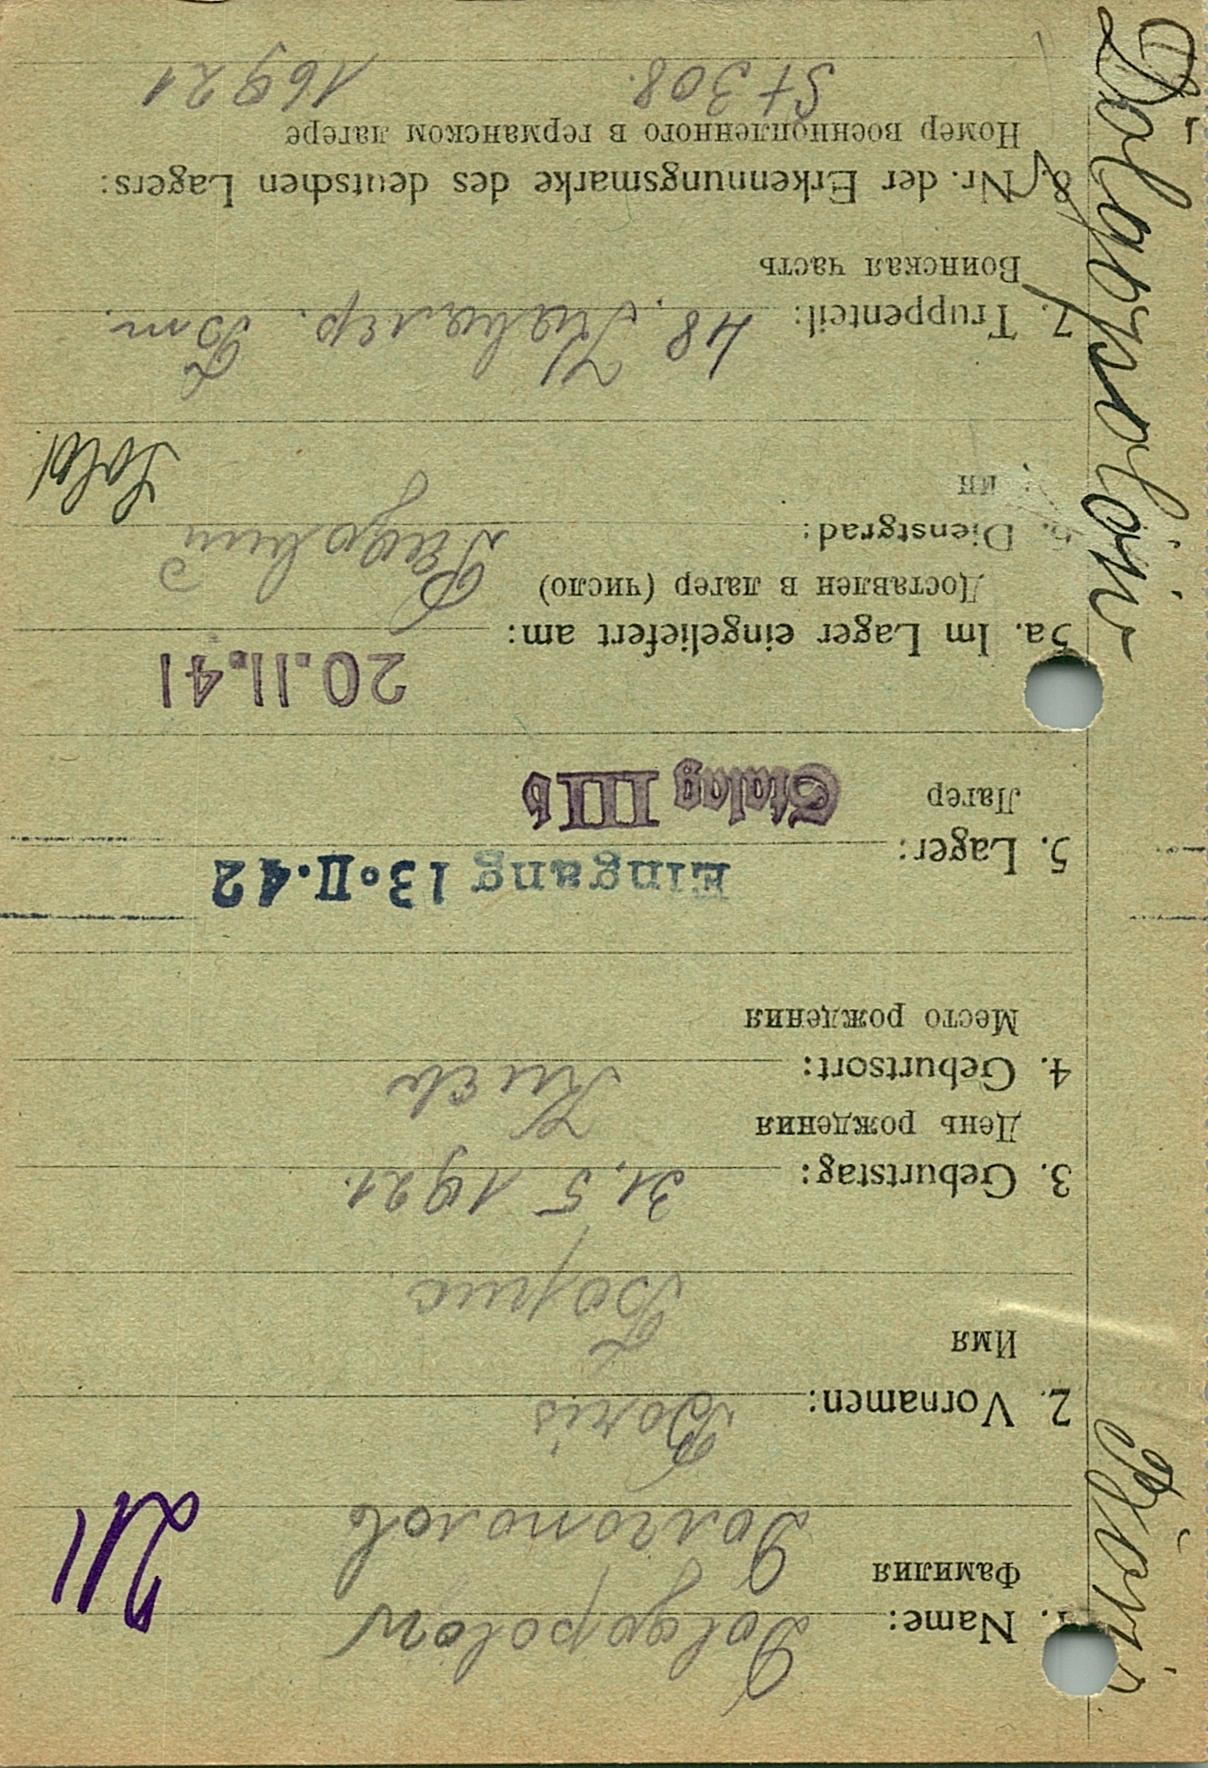 Dolgopolow
1. Name:
Фамилия
Долгополов
2. Vornamen: Boris
Имя
Борис
3. Geburtstag: 31.5 1921.
День рождения
4. Geburtsort: Киев
Место рождения
Eingang 13.II.42
5. Lager: Stalag III b
Лагер
20.11.41
5a. Im Lager eingeliefert am:
Доставлен в лагер (число)
6. Dienstgrad: Рядовий
ин
Sold
7. Truppenteil: 48. Кавалер. Бт.
Воинская часть
8. Nr. der Erkennungsmarke des deutschen Lagers:
Номер военнопленного в германском лагере
St 308. 16921
Dolgopolow